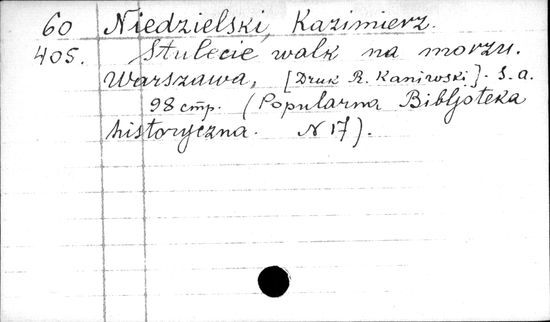 60 Niedzielski, Kazimierz.
405. Stulecie walk na morzu.
Warszawa, [Druk R. Kaniewski]. S. a.
98 cmp. (Popularna Bibljoteka
historyczna. N 17).